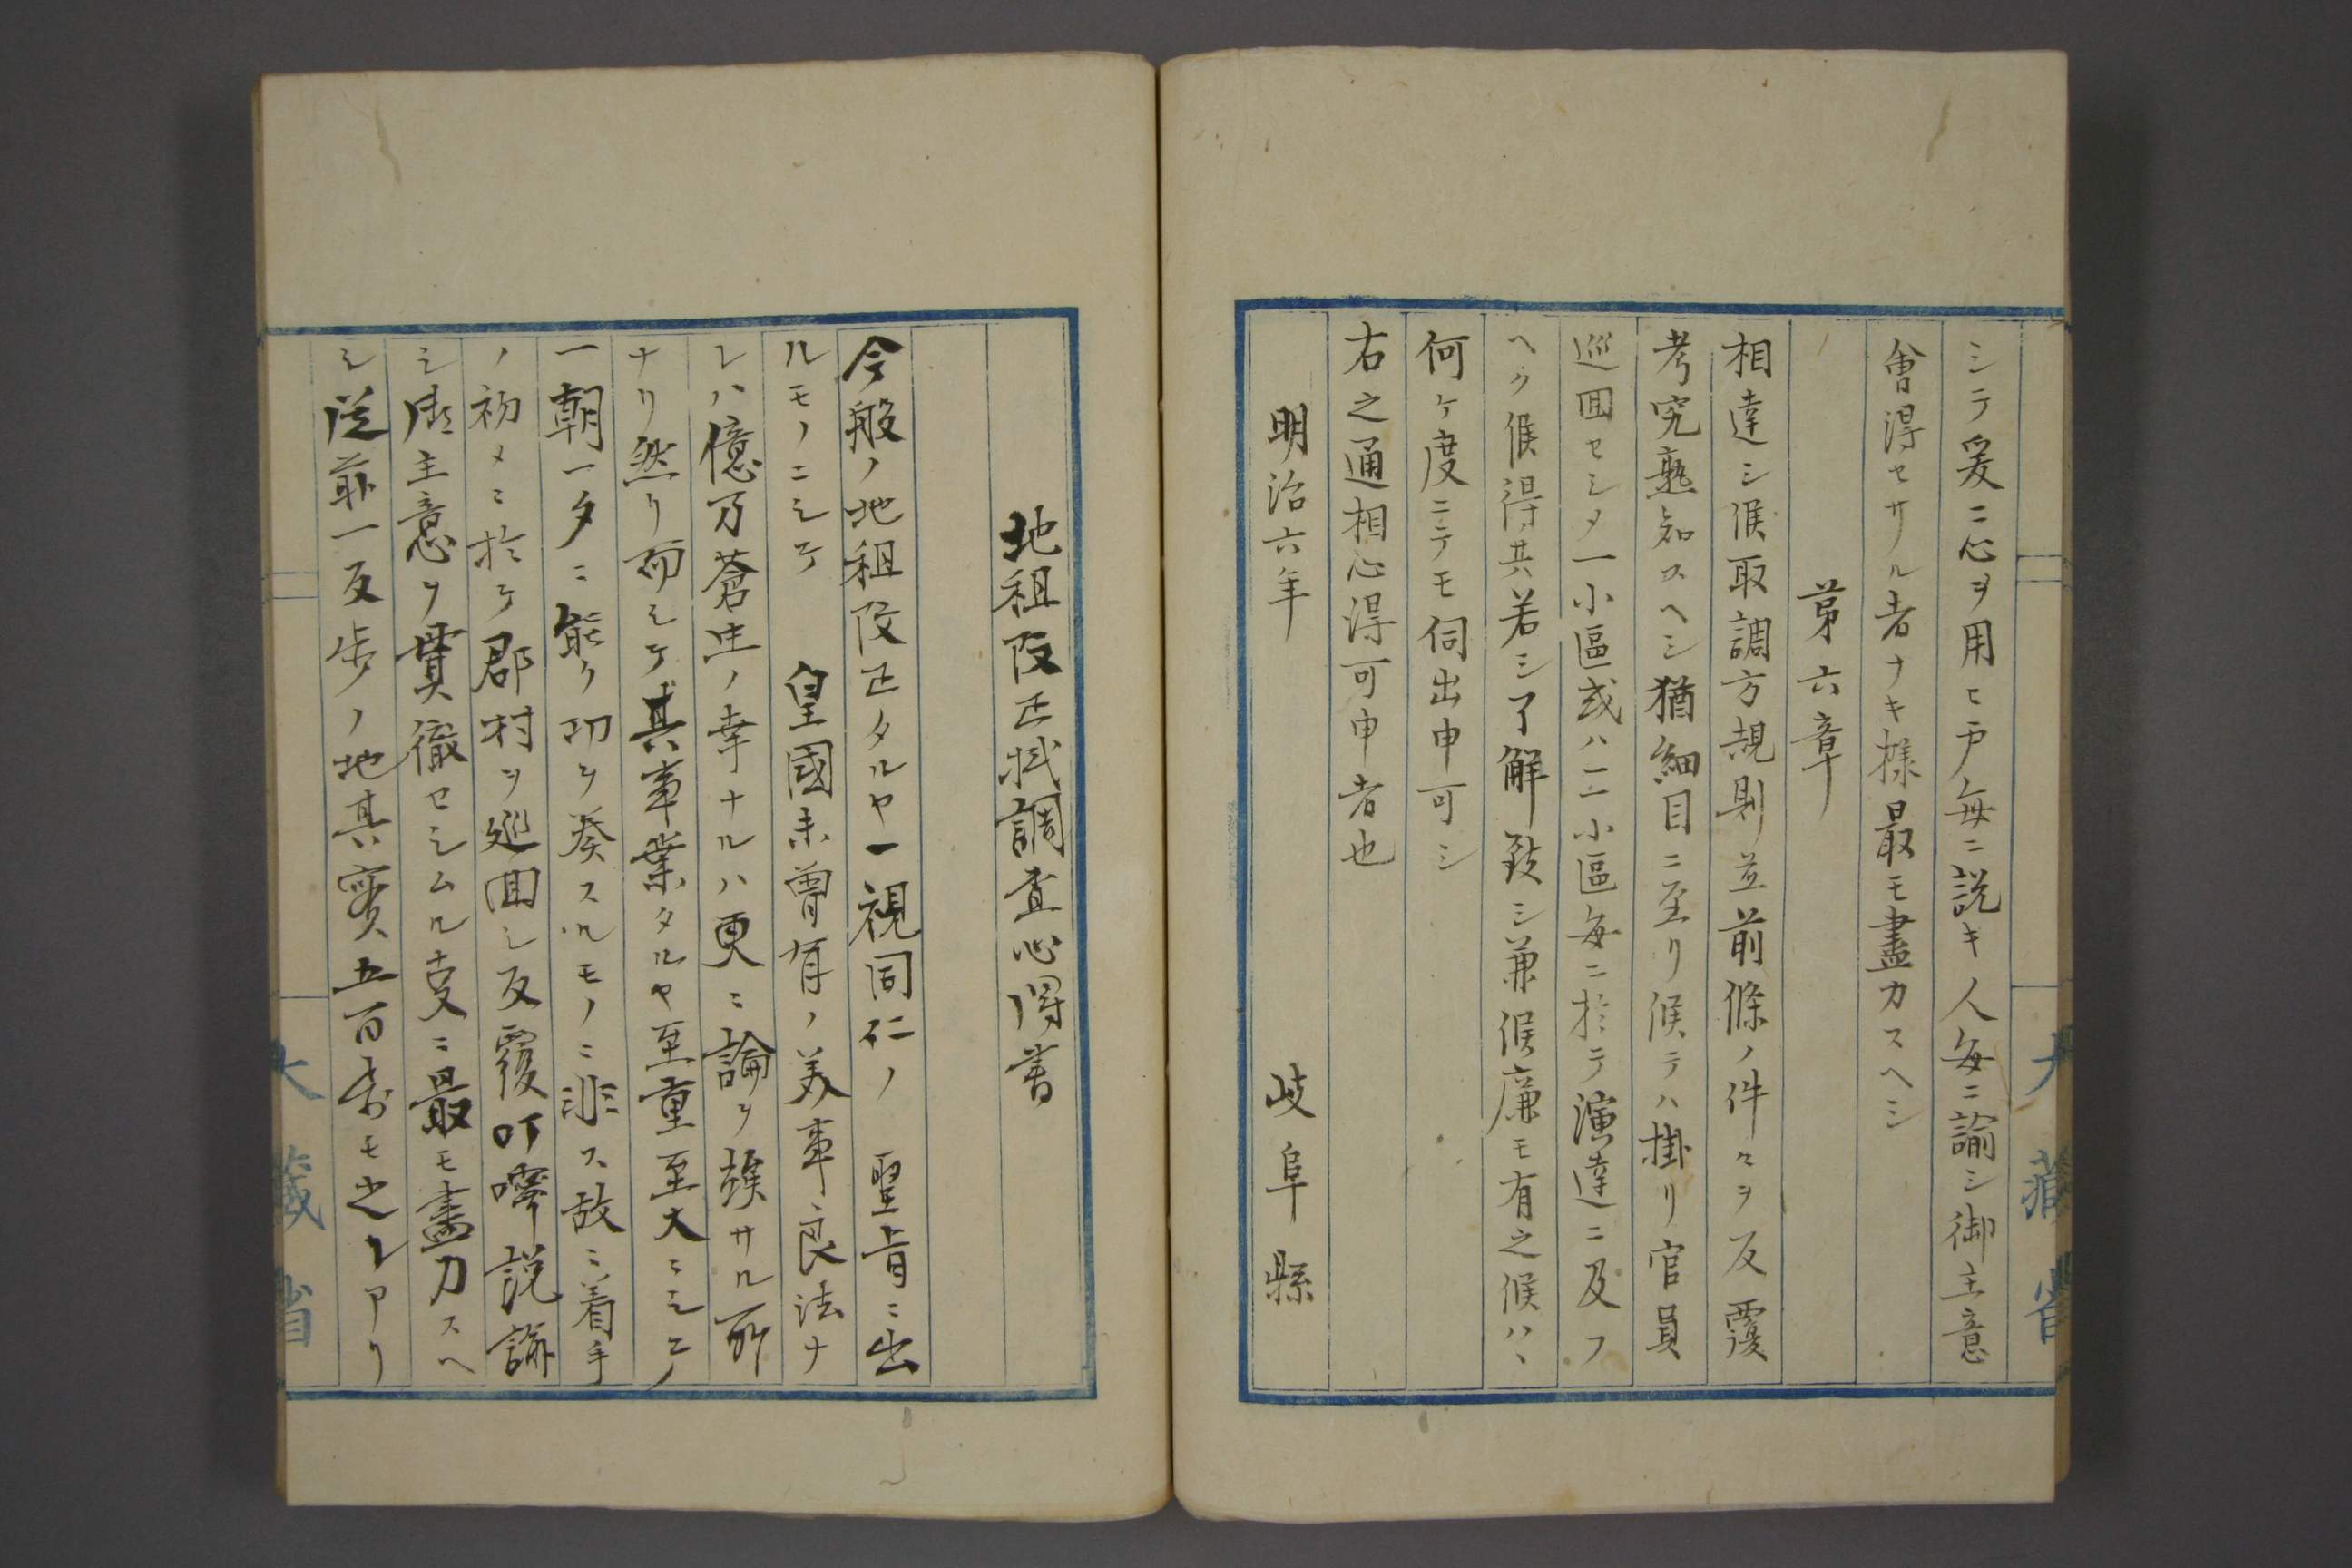 シテ爰ニ心ヲ用ヒ戸毎ニ説キ人毎ニ諭シ御主意
會得セサル者ナキ様最モ盡力スヘシ
第六章
相達シ候取調方規則並前條ノ件々ヲ反覆
考究熟知スヘシ猶細目ニ至リ候テハ掛リ官員
巡囬セシメ一小區或ハ二小區毎ニ於テ演達ニ及フ
ヘク候得共若シ了解致シ兼候廉モ有之候ハヽ
何ヶ度ニテモ伺出申可シ
右之通相心得可申者也
明治六年 岐阜縣
大藏省
地租改正掛調査心得書
今般ノ地租改正タルヤ一視同仁ノ 聖旨ニ出
ルモノニシテ 皇國未曽有ノ美事良法ナ
レハ億万蒼生ノ幸ナルハ更ニ論ヲ俟サル所
ナリ然リ而シテ其事業タルヤ至重至大ニシテ
一朝一夕ニ能ク功ヲ奏スルモノニ非ス故ニ着手
ノ初メニ於テ郡村ヲ巡囬シ反覆叮嚀説諭
シ御主意ヲ貫徹セシムル叓ニ最モ盡力スヘ
シ従前一反歩ノ地其實五百歩モ之レアリ
大藏省